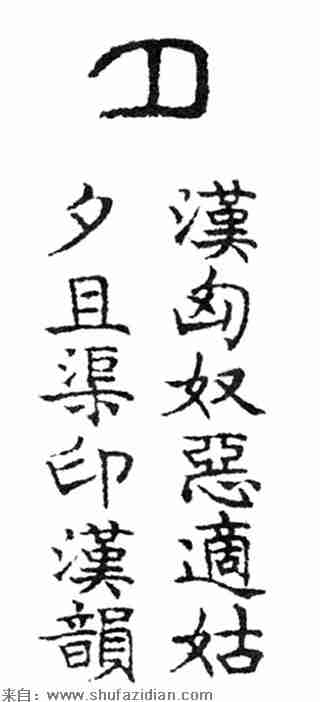 漢匈奴惡適姑
夕且渠印漢韻
来自：www.shufazidian.com